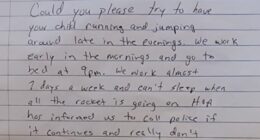 Could you please try to have
your child running and jumping
around late in the evenings. We work
early in the mornings and go to
bed at 9pm. We work almost
7 days a week and can't sleep when
all the racket is going on. HOA
has informed us to call police if
it continues and really don't